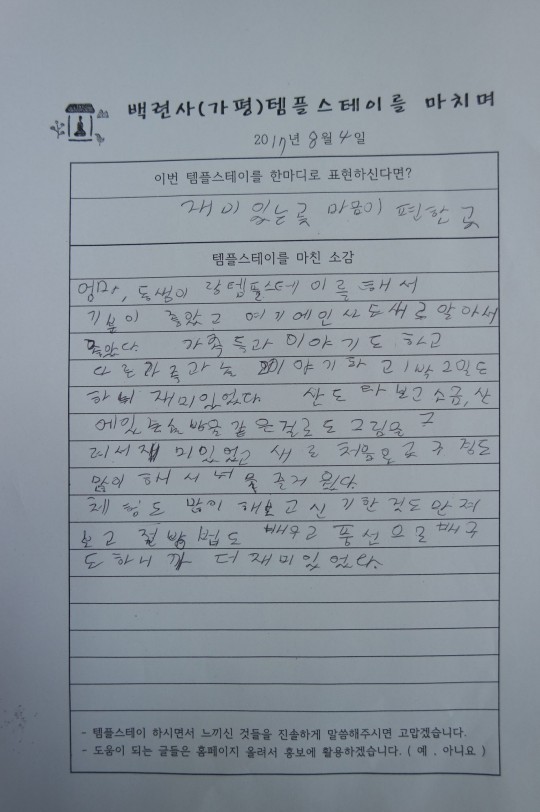 백련사(가평)템플스테이를 마치며
2017년 8월 4일
이번 템플스테이를 한마디로 표현하신다면?
재미 있는 곳 마음이 편한 곳
템플스테이를 마친 소감
엄마, 동생이랑 템플스테이를 해서
기분이 좋았고 여기에 인사도 새로 알아서
좋았다. 가족들과 이야기도 하고
다른 가족과는 이야기하고 1박 2일도
하니 재미있었다 산도 타보고 소금, 산
에있는 같은걸로도 그림을 그
려서 재미있었고 새로 처음으로 구경도
많이 해서 너무 즐거웠다.
체험도 많이 해보고 신기한것도 만져
보고 절방법도 배우고 풍선으로 배구
도 하니까 더 재미있었다.
- 템플스테이 하시면서 느끼신 것들을 진솔하게 말씀해주시면 고맙겠습니다.
- 도움이 되는 글들은 홈페이지 올려서 홍보에 활용하겠습니다. ( 예 , 아니요 )